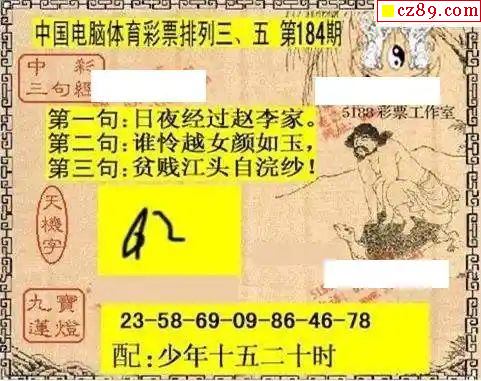 cz89.com
中国电脑体育彩票排列三、五 第184期
中彩
三句經
5188彩票工作室
第一句:日夜经过赵李家。
第二句:谁怜越女颜如玉,
第三句:贫贱江头自浣纱!
天機字
九寶
蓮燈
23-58-69-09-86-46-78
配:少年十五二十时